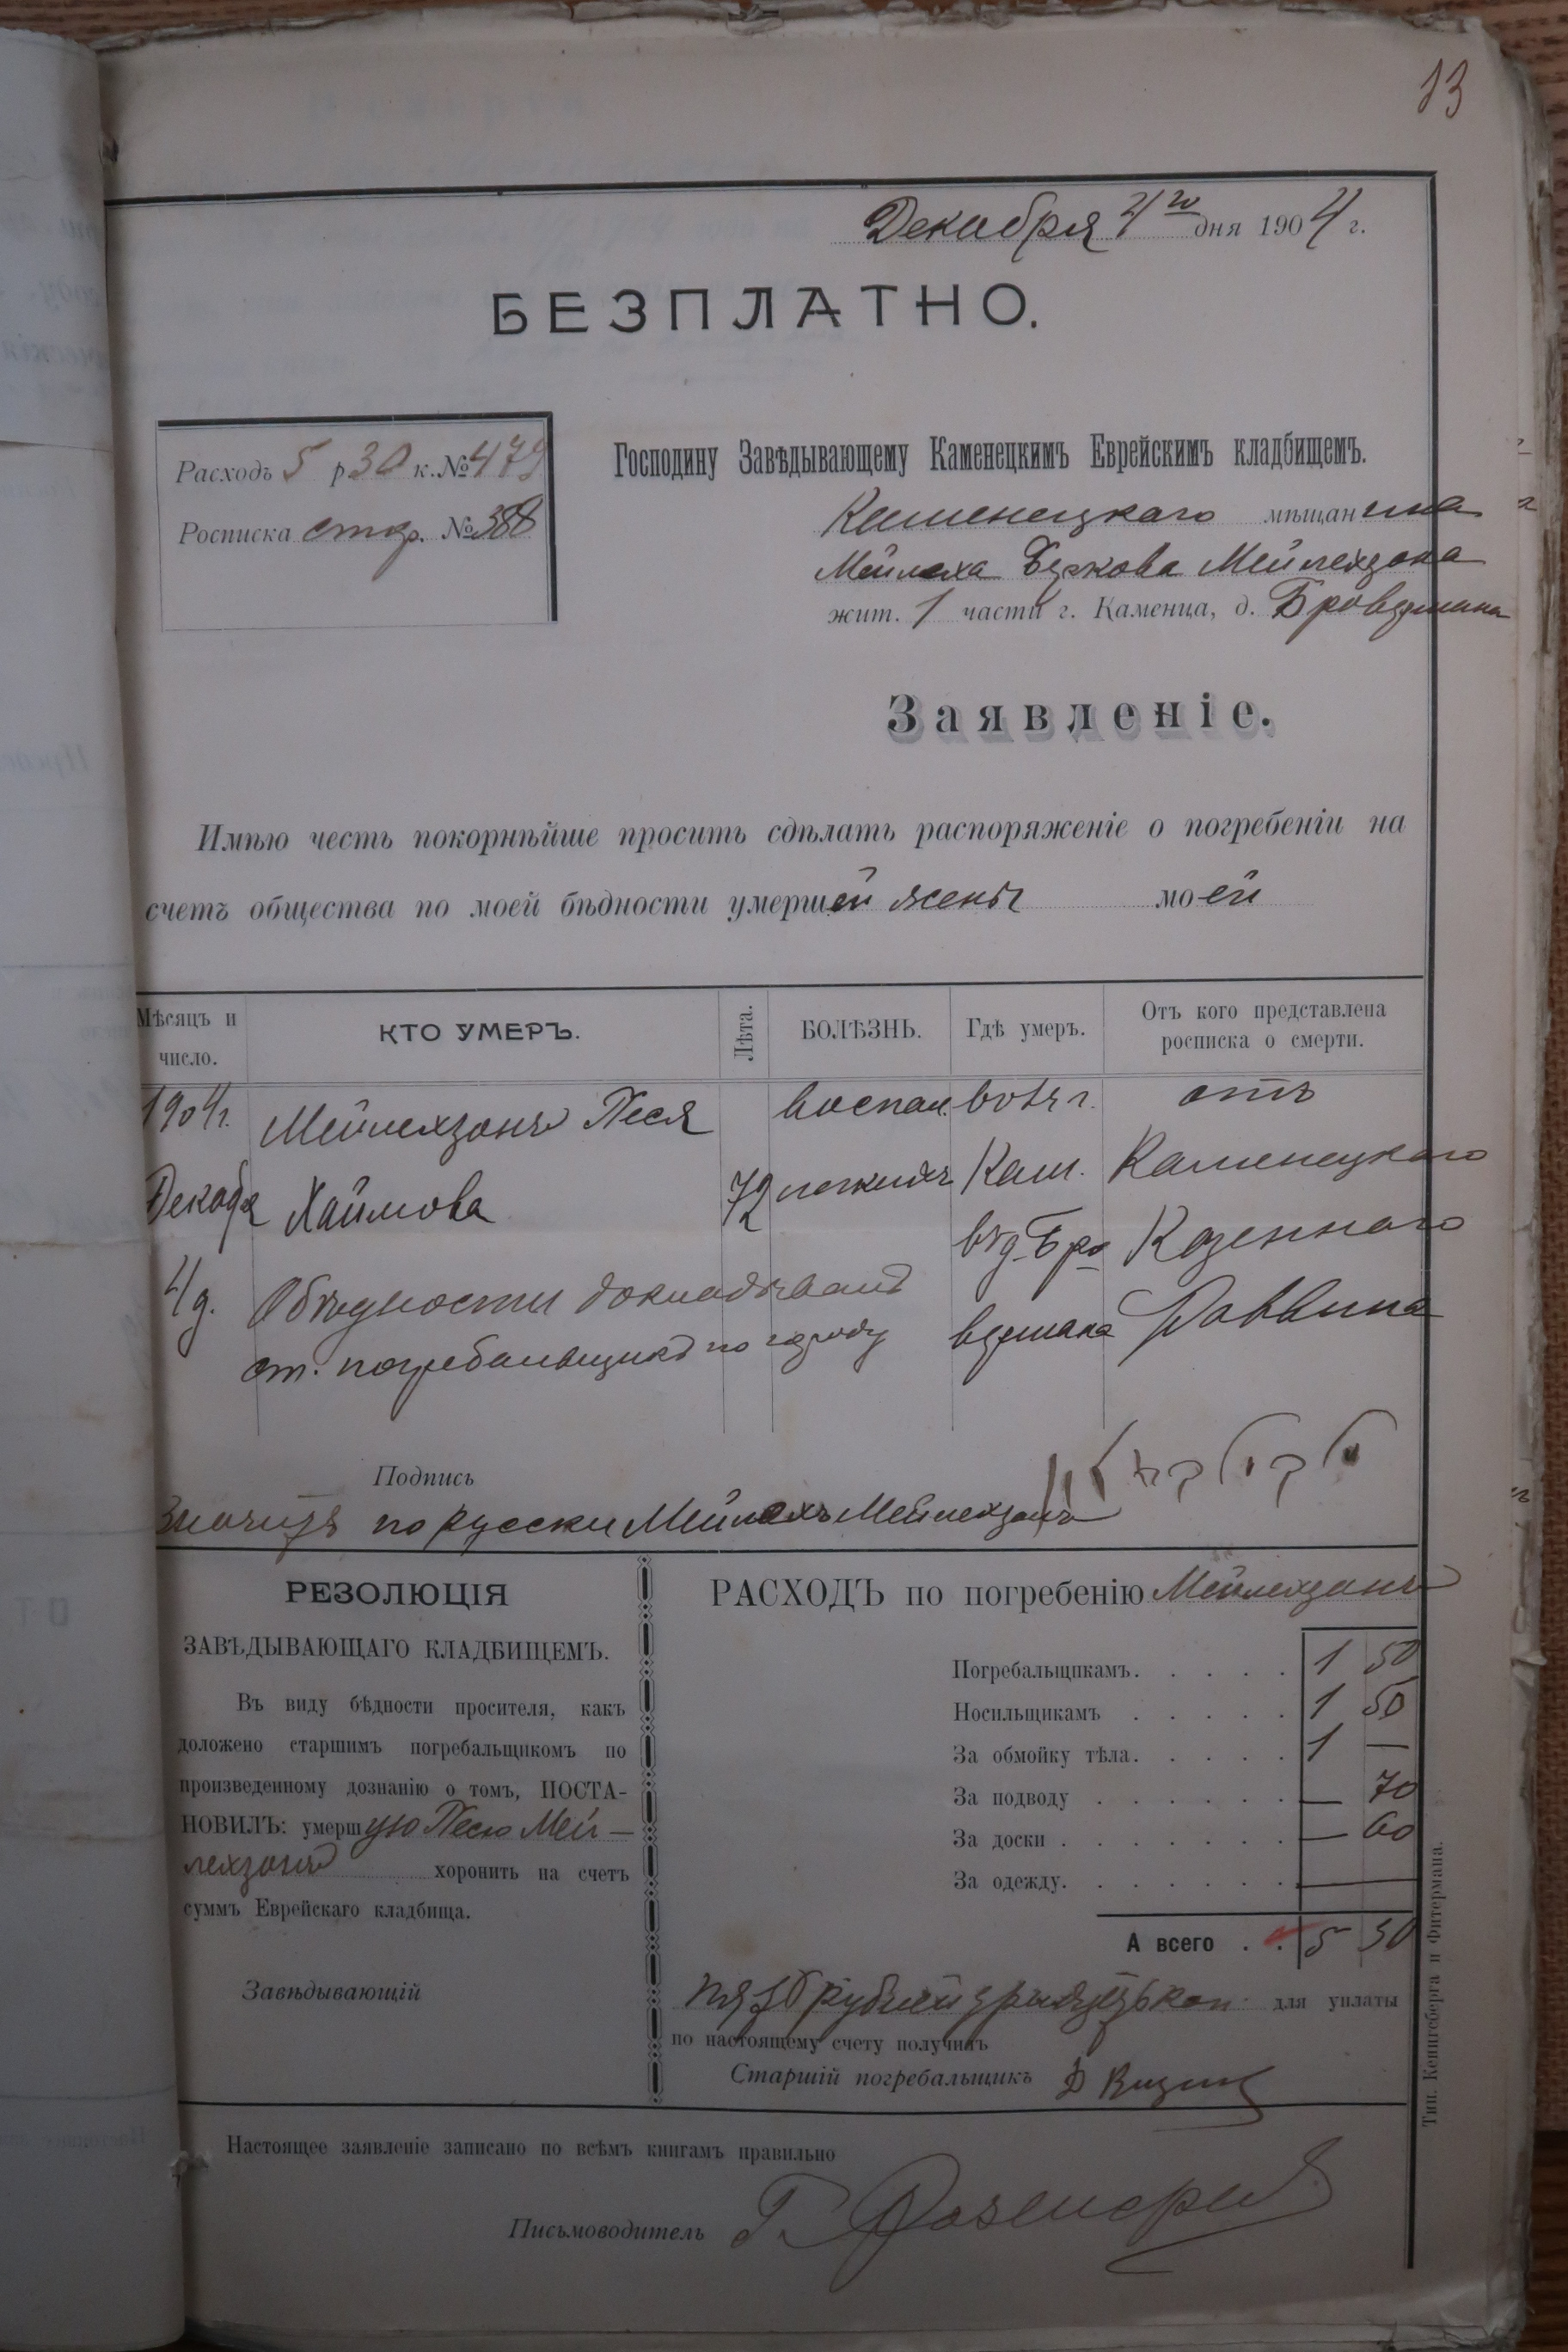 13
Декабря 4го дня 1904 г.
БЕЗПЛАТНО.
Расходъ 5 р 30 к. № 479
Росписка стар. № 388
Господину Завѣдывающему Каменецкимъ Еврейскимъ кладбищемъ.
Каменецкаго мѣщанина
Мейлеха Беркова Мейлехзона
жит. 1 части г. Каменца, д. Бровермана
Заявленіе.
Имѣю честь покорнѣйше просить сдѣлать распоряженіе о погребеніи на
счетъ общества по моей бѣдности умершей жены моей
Мѣсяцъ и число.
КТО УМЕРЪ.
Лѣта.
БОЛѢЗНЬ.
Гдѣ умеръ.
Отъ кого представлена росписка о смерти.
1904 г. Мейлехзонъ Песя воспал. отъ
Декабр Хаимова 72 легкихъ Кам. Каменецкаго
въ д. Бро Казеннаго
4 д. О бѣдности докладывалъ вермана Раввина
ст. погребальщикъ по городу
Подпись
Значитъ по русски Мейлехъ Мейлехзонъ
РЕЗОЛЮЦІЯ
ЗАВѢДЫВАЮЩАГО КЛАДБИЩЕМЪ.
Въ виду бѣдности просителя, какъ
доложено старшимъ погребальщикомъ по
произведенному дознанію о томъ, ПОСТА-
НОВИЛЪ: умершую Песю Мей-
лехзонъ хоронить на счетъ
суммъ Еврейскаго кладбища.
Завѣдывающій
РАСХОДЪ по погребенію Мейлехзонъ
Погребальщикамъ. . . . . 1 50
Носильщикамъ . . . . . 1 50
За обмойку тѣла. . . . . 1 —
За подводу . . . . . . — 70
За доски . . . . . . . — 60
За одежду. . . . . . . —
А всего . . 5 30
пять рублей тридцать коп. для уплаты
по настоящему счету получилъ
Старшій погребальщикъ
Настоящее заявленіе записано по всѣмъ книгамъ правильно
Письмоводитель Г.
Тип. Кенигсберга и Фитермана.